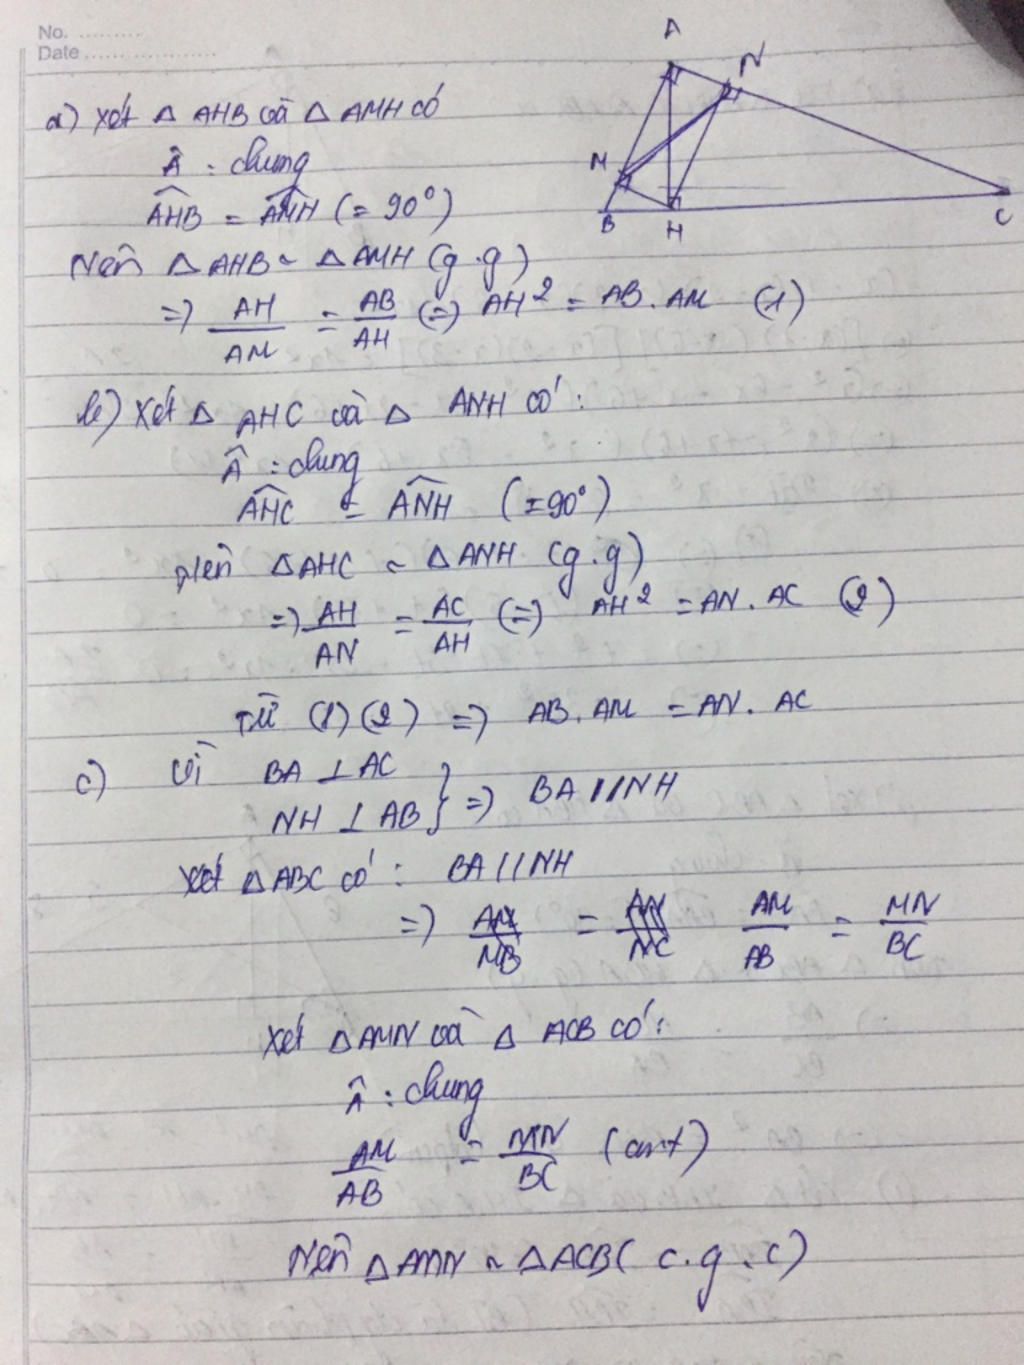 No. ..........
Date ....................
A
N
M
B
H
C
a) Xét Δ AHB và Δ AMH có
Â : chung
AHB = AMH (= 90°)
Nên Δ AHB ~ Δ AMH (g.g)
=> AH/AM = AB/AH (=) AH² = AB. AM (1)
b) Xét Δ AHC và Δ ANH có :
Â : chung
AHC = ANH (=90°)
nên ΔAHC ~ ΔANH (g.g)
=> AH/AN = AC/AH (=) AH² = AN. AC (2)
Từ (1) (2) => AB. AM = AN. AC
c) Vì BA ⊥ AC
NH ⊥ AB } => BA // NH
Xét ΔABC có : BA // NH
=> AM/MB = AN/NC AM/AB = MN/BC
Xét ΔAMN và Δ ACB có :
Â : chung
AM/AB = MN/BC (cmt)
Nên ΔAMN ~ ΔACB ( c.g.c)